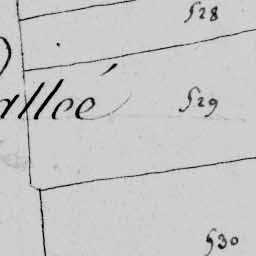 528
allée
529
530